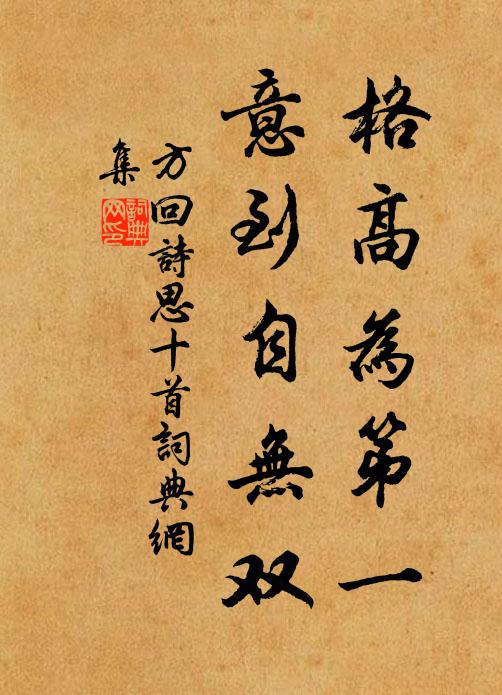 格高為第一
意到自無双
方回詩思十首詞典網
集
詞典網印